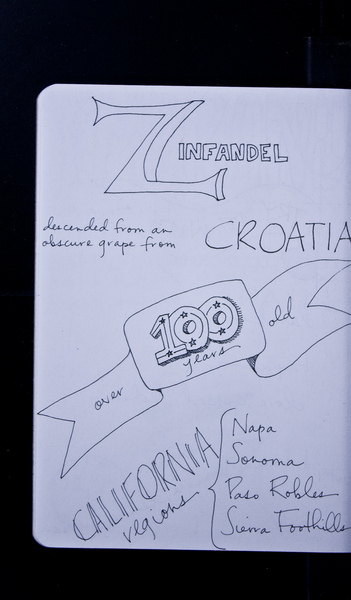 ZINFANDEL
descended from an
obscure grape from
CROATIA
over
100
years
old
CALIFORNIA
regions
Napa
Sonoma
Paso Robles
Sierra Foothills